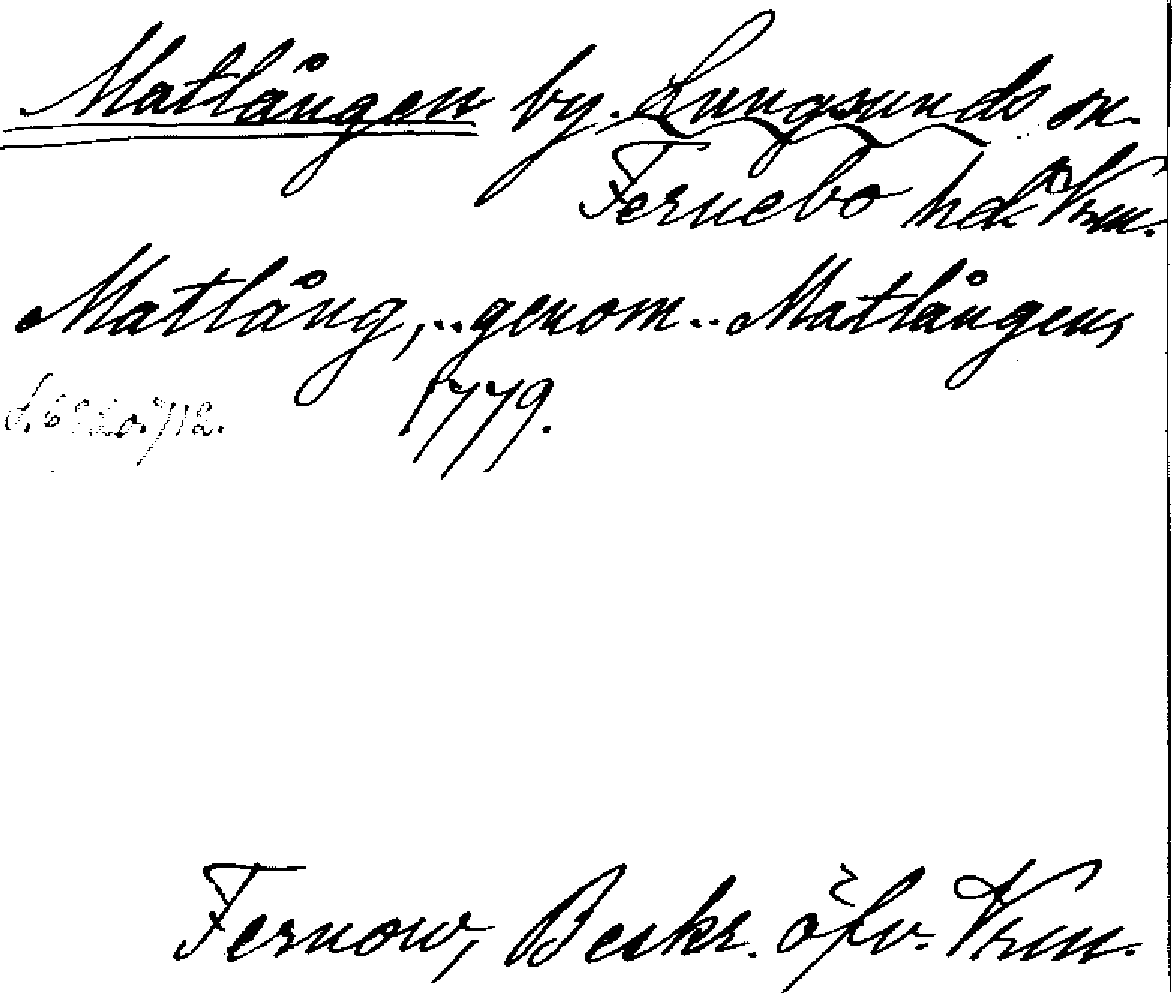 Matlången by. Lungsunds sn.
Fernebo hd. Vrm.
Matlång, .. genom .. Matlången,
1779.
Fernow, Beskr. öfv. Vrm.